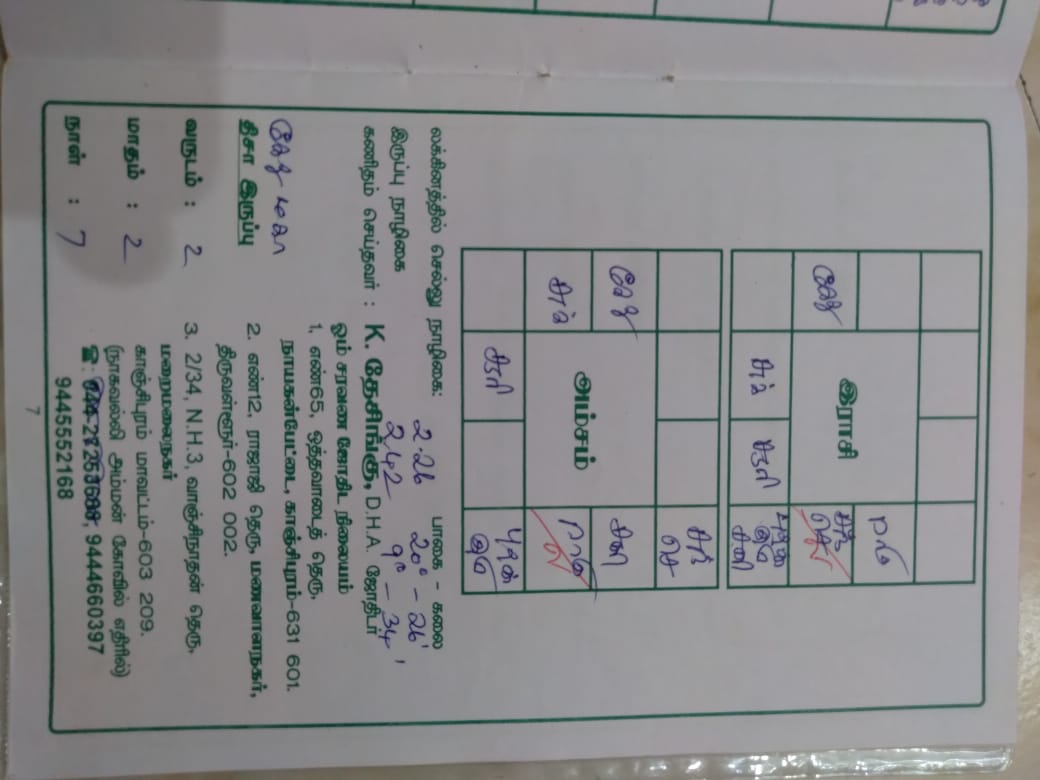 இராசி
ராகு
கேது
சந்
சனி
அம்சம்
கேது
சனி
ராகு
சனி
லக்கினத்தில் செல்லு நாழிகை: 2.26 பாகை - கலை 20° - 26'
இருப்பு நாழிகை 2.42 9° - 34'
கணிதம் செய்தவர் : K. தேசிங்கு, D.H.A. ஜோதிடர்
ஓம் சரவண ஜோதிட நிலையம்
1, எண்65, ஒத்தவாடைத் தெரு,
நாயகன்பேட்டை, காஞ்சிபுரம்-631 601.
2. எண்12, ராஜாஜி தெரு, மணவாளநகர்,
திருவள்ளூர்-602 002.
3. 2/34, N.H.3, வாஞ்சிநாதன் தெரு,
மறைமலைநகர்
காஞ்சிபுரம் மாவட்டம்-603 209.
(நாகவல்லி அம்மன் கோவில் எதிரில்)
9444660397
9445552168
கேது மகா
திசா இருப்பு
வருடம் : 2
மாதம் : 2
நாள் : 7
7